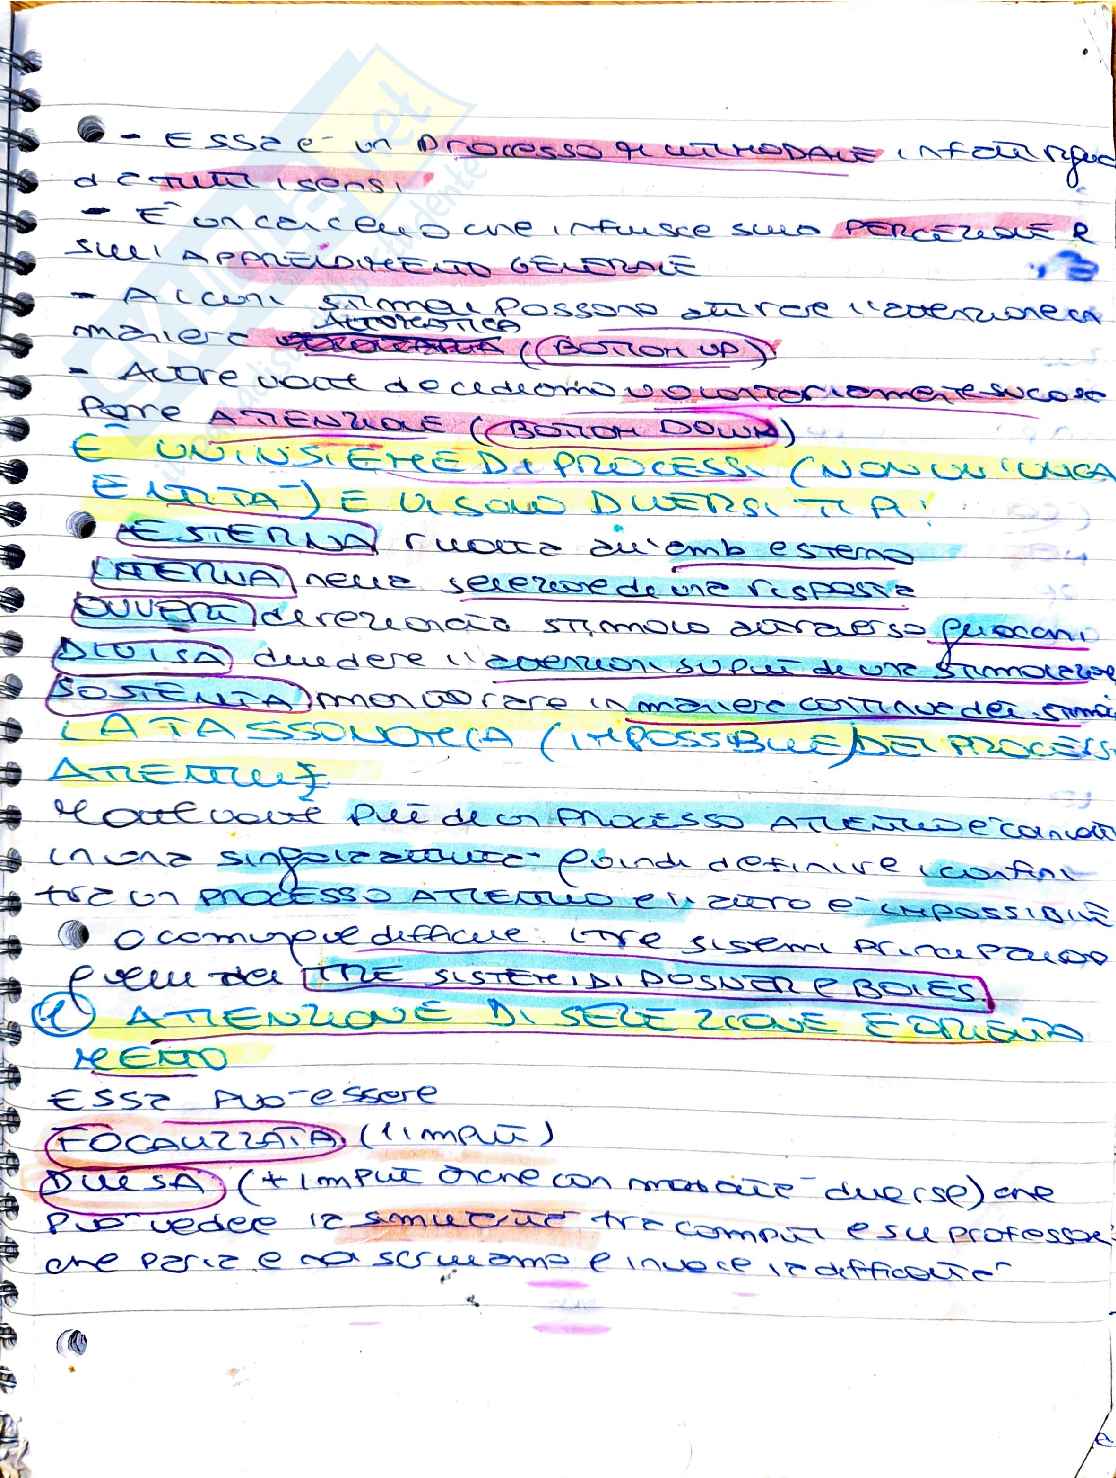 - ESSA è un PROCESSO MULTIMODALE infatti riguarda
da TUTTI i sensi
- È un concetto che influisce sulla PERCEZIONE e
sull'APPRENDIMENTO GENERALE
- Alcuni stimoli possono attirare l'attenzione in
maniera AUTOMATICA (BOTTOM UP)
- Altre volte decidiamo volontariamente su cosa
porre ATTENZIONE (BOTTOM DOWN)
È UN INSIEME DI PROCESSI (NON UN'UNICA
ENTITÀ) E VI SONO DIVERSI TIPI:
ESTERNA rivolta all'amb esterno
INTERNA nella selezione di una risposta
OVVERT direzionata stimolo attraverso gli occhi
DIVISA dividere l'attenzione su più di una stimolazione
SOSTENUTA monitorare in maniera continua dei stimoli
LA TASSONOMIA (IMPOSSIBILE) DEI PROCESSI
ATTENTIVI
Molte volte più di un PROCESSO ATTENTIVO è
in una singola attività quindi definire i confini
tra un PROCESSO ATTENTIVO e l'altro è IMPOSSIBILE
O comunque difficile. I tre sistemi principali sono
quelli dei TRE SISTEMI DI POSNER e BOIES.
1 ATTENZIONE DI SELEZIONE E ORIENTA
MENTO
ESSA può essere
FOCALIZZATA (1 imput)
DIVISA (+ imput anche con modalità diverse) che
può vedere la similitudine tra compiti e su professore
che parla e noi scriviamo e invece la difficoltà